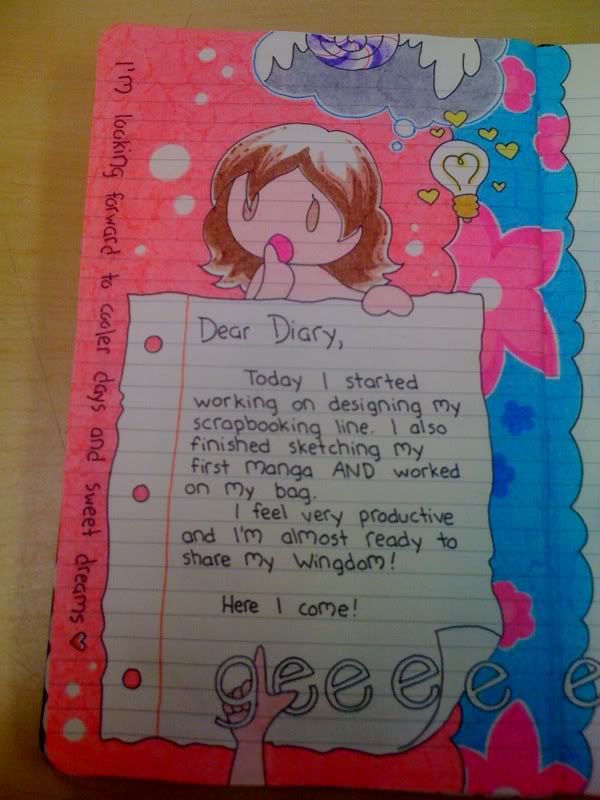 I'm looking forward to cooler days and sweet dreams ♡
Dear Diary,
Today I started
working on designing my
scrapbooking line. I also
finished sketching my
first manga AND worked
on my bag.
I feel very productive
and I'm almost ready to
share my Wingdom!
Here I come!
geeeee